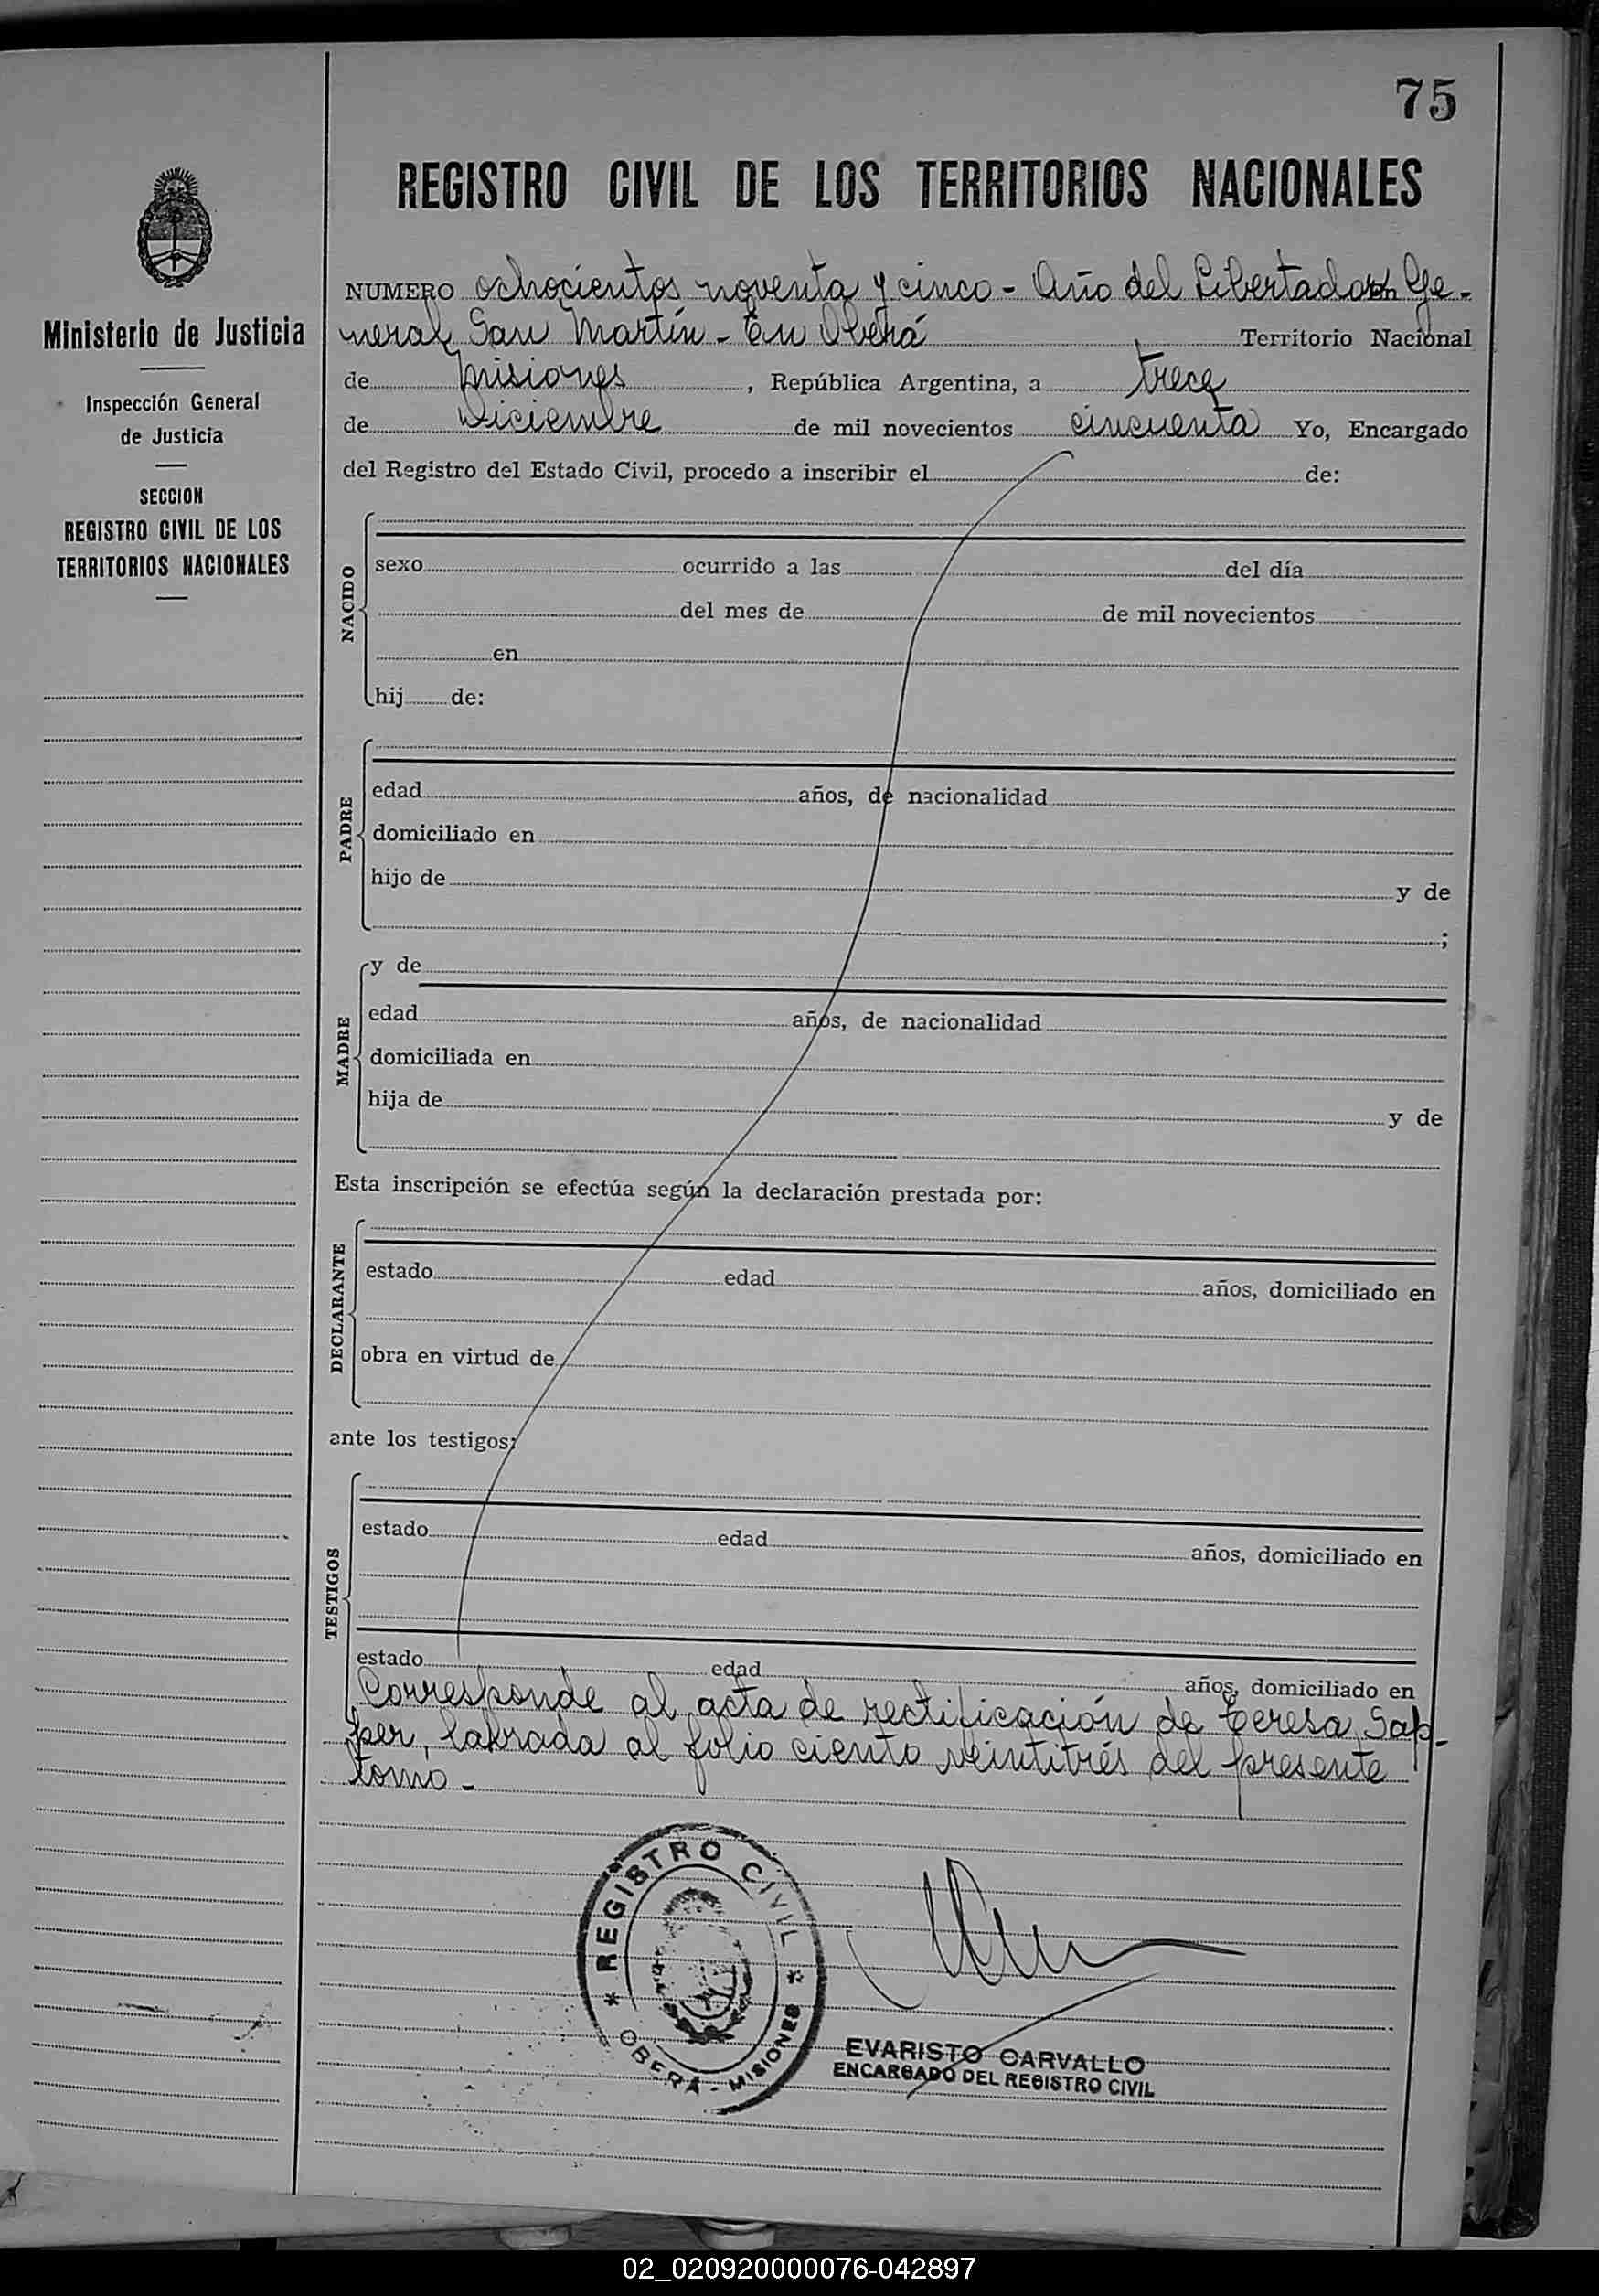 75
REGISTRO CIVIL DE LOS TERRITORIOS NACIONALES
Ministerio de Justicia
Inspección General
de Justicia
SECCION
REGISTRO CIVIL DE LOS
TERRITORIOS NACIONALES
NUMERO ochocientos noventa y cinco - Año del Libertador Ge-
neral San Martín - En Oberá Territorio Nacional
de Misiones, República Argentina, a trece
de Diciembre de mil novecientos cincuenta Yo, Encargado
del Registro del Estado Civil, procedo a inscribir el de:
NACIDO
sexo ocurrido a las del día
del mes de de mil novecientos
en
hij de:
PADRE
edad años, de nacionalidad
domiciliado en
hijo de y de
;
MADRE
y de
edad años, de nacionalidad
domiciliada en
hija de y de
Esta inscripción se efectúa según la declaración prestada por:
DECLARANTE
estado edad años, domiciliado en
obra en virtud de
ante los testigos:
TESTIGOS
estado edad años, domiciliado en
estado edad años, domiciliado en
Corresponde al acta de rectificación de Teresa Sap-
per, labrada al folio ciento veintitrés del presente
tomo -
* REGISTRO CIVIL *
OBERA - MISIONES
EVARISTO CARVALLO
ENCARGADO DEL REGISTRO CIVIL
02_020920000076-042897